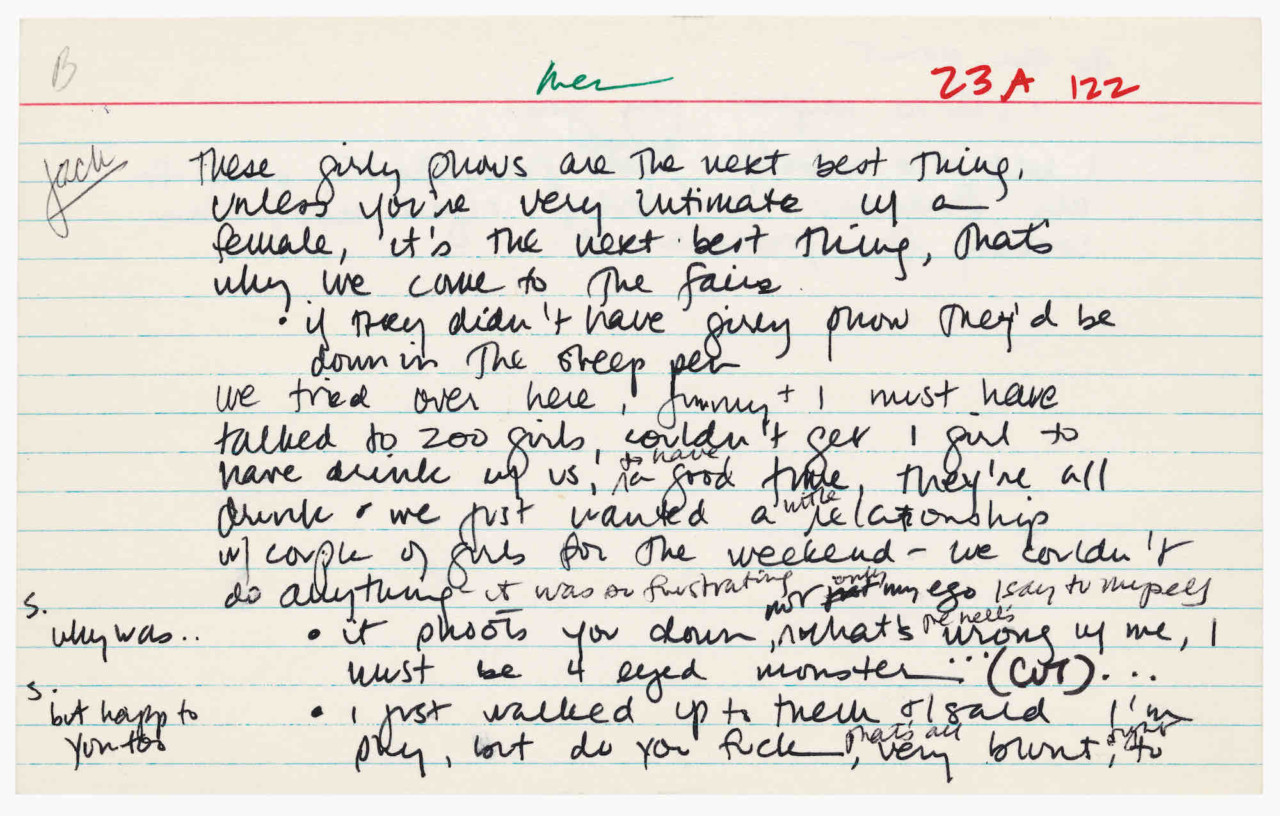 B
men
23A 122
Jack
These girly shows are the next best thing,
unless you're very intimate w/ a
female, it's the next best thing, that's
why we come to the fairs.
• if they didn't have girly show they'd be
down in the sheep pen
we tried over here, Jimmy + I must have
talked to 200 girls, couldn't get 1 girl to
to have
have drink w/ us, a good time, they're all
little
drunk • we just wanted a relationship
w/ couple of girls for the weekend - we couldn't
do anything - it was so frustrating not only my ego I say to myself
S.
why was.. • it shoots you down, what's the hell's wrong w/ me, I
must be 4 eyed monster ... (CUT) ...
S.
but happ to • I just walked up to them + I said I'm
you too shy, but do you fuck, that's all, very blunt, right to